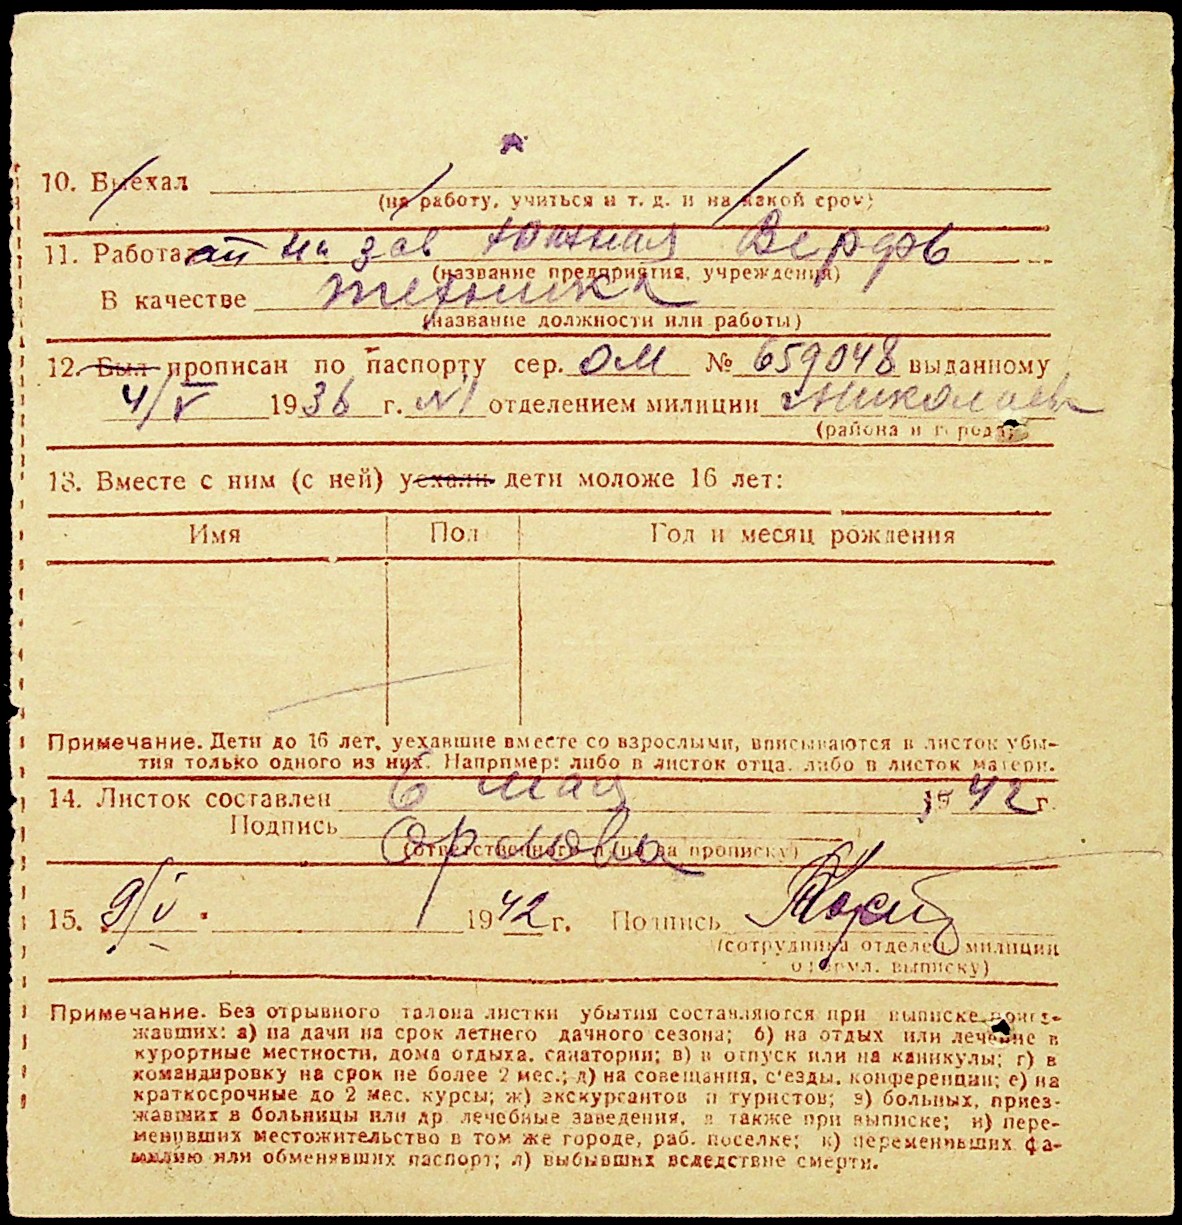 10. Выехал
(на работу, учиться и т. д. и на какой срок)
11. Работает на зав Южная Верфь
(название предприятия, учреждения)
В качестве техника
(название должности или работы)
12. Был прописан по паспорту сер. ОМ № 659048 выданному
4/V 1936 г. №1 отделением милиции г. Николаев
(района и города)
13. Вместе с ним (с ней) уехали дети моложе 16 лет:
Имя Пол Год и месяц рождения
Примечание. Дети до 16 лет, уехавшие вместе со взрослыми, вписываются в листок убы-
тия только одного из них. Например: либо в листок отца, либо в листок матери.
14. Листок составлен 6 мая 1942 г.
Подпись Орлова
(ответственного лица за прописку)
15. 9/V 1942 г. Подпись
(сотрудника отделен. милиции
оформл. выписку)
Примечание. Без отрывного талона листки убытия составляются при выписке приез-
жавших: а) на дачи на срок летнего дачного сезона; б) на отдых или лечение в
курортные местности, дома отдыха, санатории; в) в отпуск или на каникулы; г) в
командировку на срок не более 2 мес.; д) на совещания, с'езды, конференции; е) на
краткосрочные до 2 мес. курсы; ж) экскурсантов и туристов; з) больных, приез-
жавших в больницы или др. лечебные заведения, а также при выписке; и) пере-
менивших местожительство в том же городе, раб. поселке; к) переменивших фа-
милию или обменявших паспорт; л) выбывших вследствие смерти.